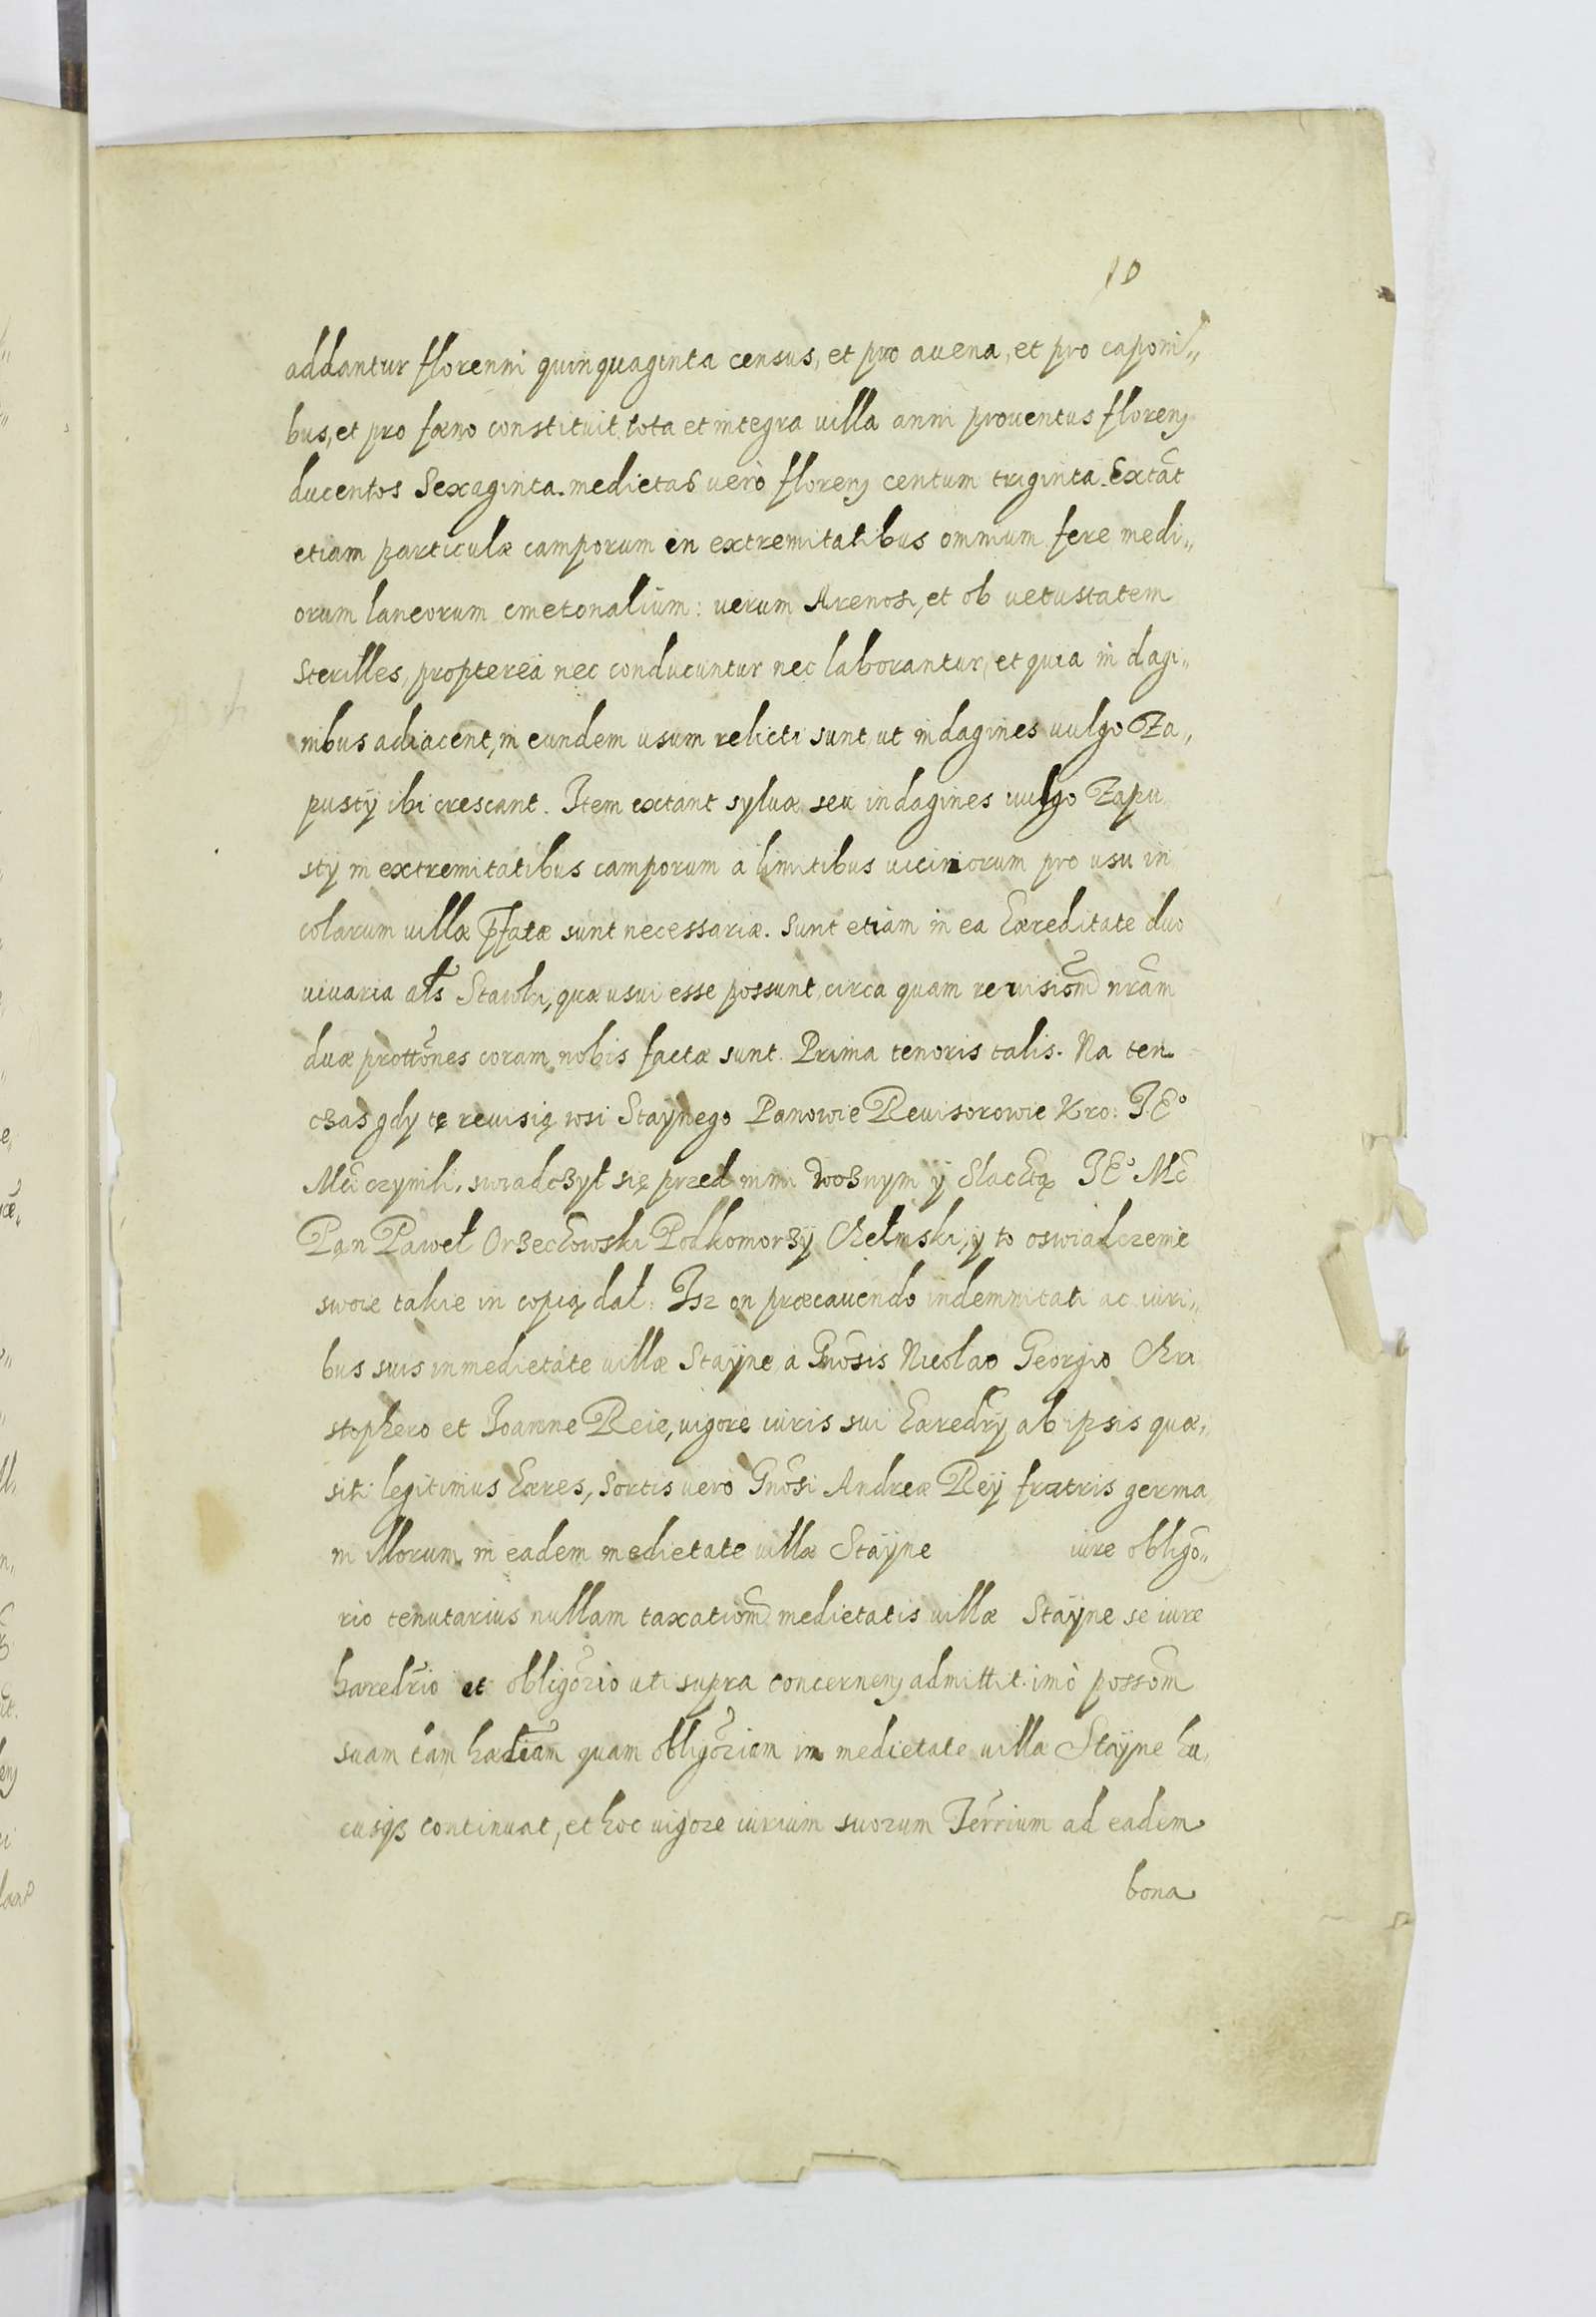 10
addantur florenni quinquaginta census, et pro auena, et pro caponi„
bus, et pro fæno constituit tota et integra villa anni prouentus floren
ducentos Sexaginta. medietas verò floren centum triginta. Extāt
etiam particulæ camporum in extremitatibus omnium fere medi„
orum laneorum cmetonalium: verum Arenosi, et ob vetustatem
sterilles, propterea nec conducuntur nec laborantur, et quia in dagi„
nibus adiacent, in eundem usum relicti sunt ut indagines vulgo Za„
pustÿ ibi crescant. Item extant syluæ seu indagines vulgo Zapu
stÿ in extremitatibus camporum a limitibus viciniorum pro usu in
colarum villæ pfatæ sunt necessariæ. Sunt etiam in ea hæreditate duo
viuaria als Stawki, quæ usui esse possunt, circa quam reuisiom nram
duæ prottones coram nobis factæ sunt. Prima tenoris talis. Na ten
czas gdy tę reuisią wsi Staÿnego Panowie Reuisorowie Kro: JEº
Mći czynili, swiadczył się przed nimi woznym ÿ slachtą JEº Mć
Pan Paweł Orzechowski Podkomorzÿ Chełmski, ÿ to oswiadczenie
swoie takie in copią dał: Isz on præcauendo indemnitati ac iuri„
bus suis in medietate villæ Staÿne a Gnosis Nicolao Georgio Chri
stophero et Joanne Reie, vigore iuris sui hæredrÿ ab ipsis quæ„
siti legitimus hæres, Sortis vero Gnosi Andreæ Reÿ fratris germa
ni illorum in eadem medietate villæ Staÿne iure obligo„
rio tenutarius nullam taxatiom medietatis villæ Staÿne se iure
hæredrio et obligorio uti supra concernen admittit. imò possom
suam tam hædriam quam obligoriam in medietate villæ Staÿne hu„
cusqʒ continuat, et hoc vigore iurium suorum Terrium ad eadem
bona